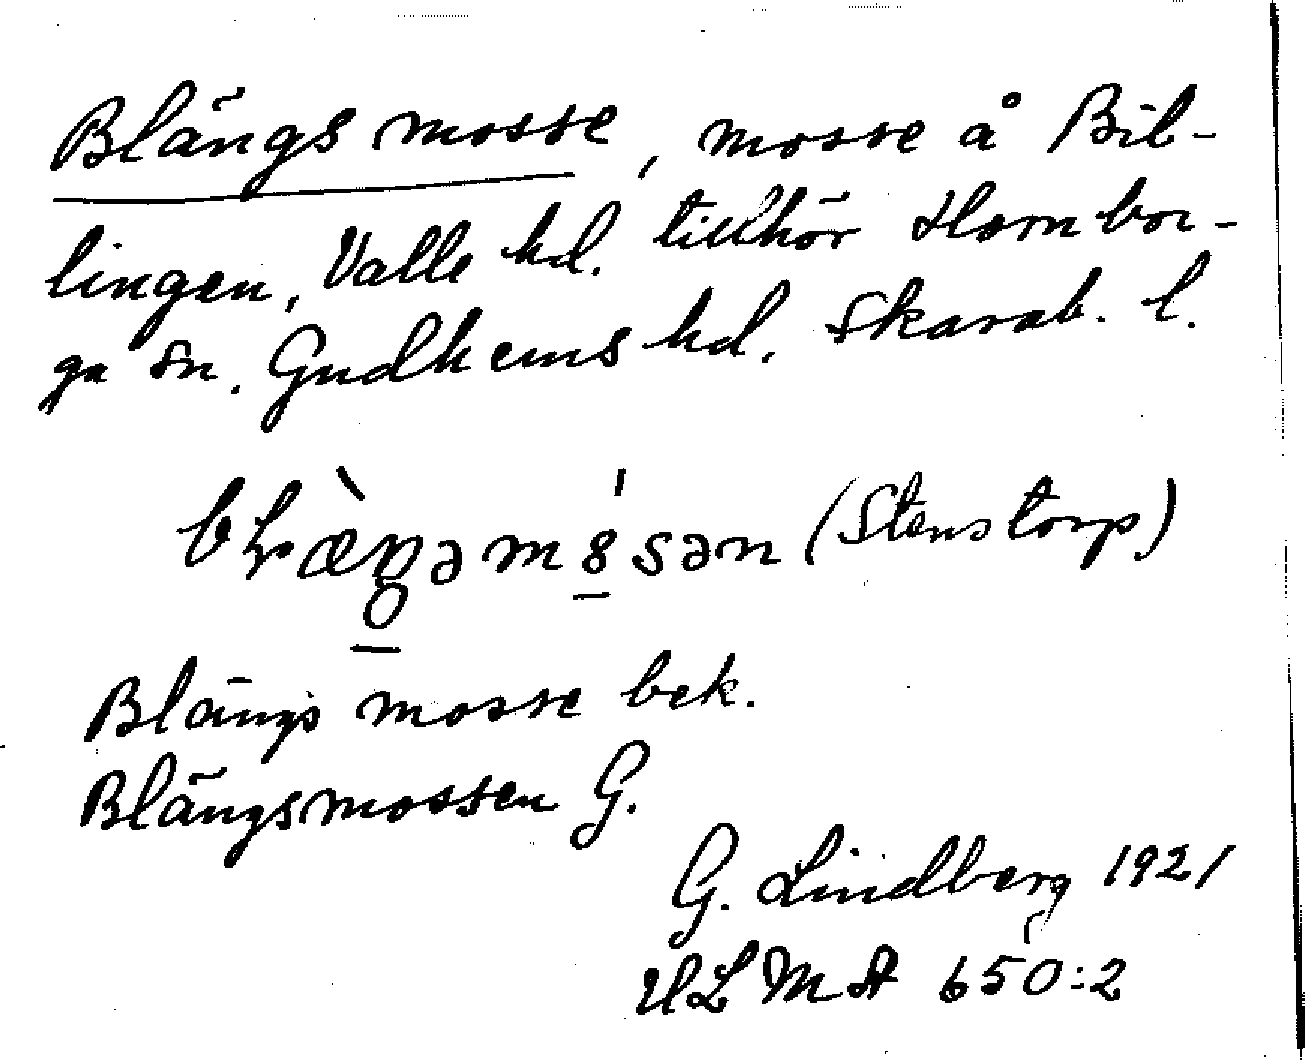 Blängs mosse, mosse å Bil-
lingen, Valle hd. tillhör Hornbor-
ga sn. Gudhems hd. Skarab. l.
(Stenstorp)
Blängs mosse bek.
Blängsmossen G.
G. Lindberg 1921
ULMA 650:2